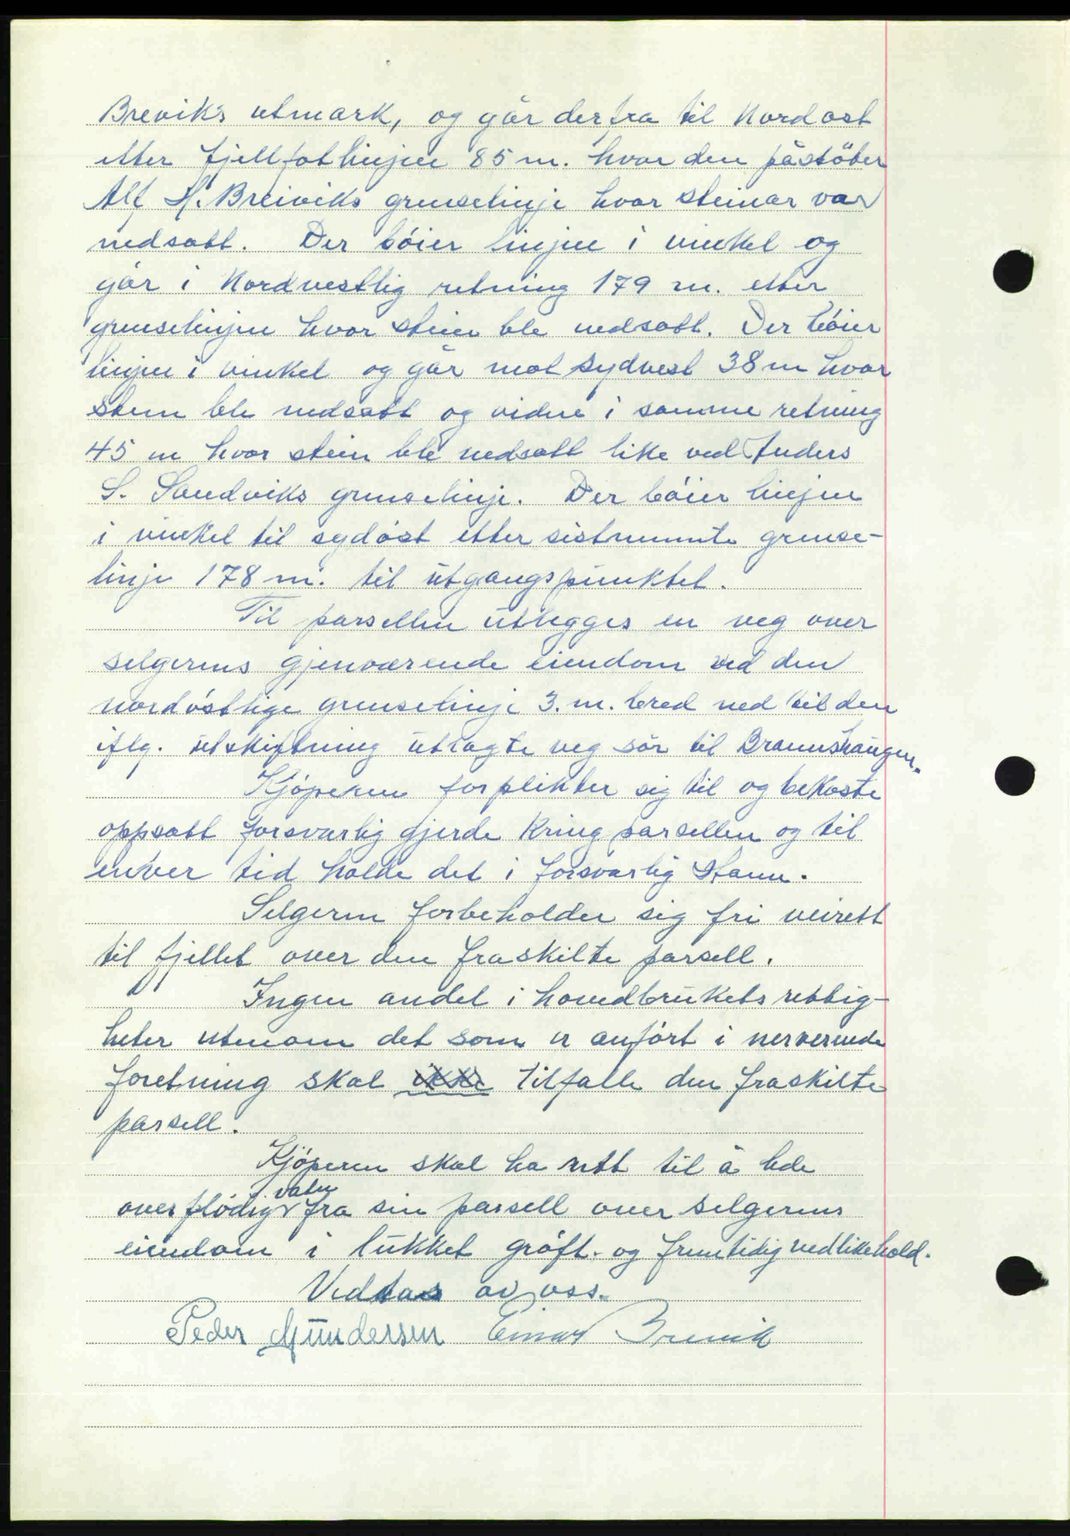 Breviks utmark, og går derfra til Nordost
etter fjellfotlinjen 85 m. hvor den påstöter
Alf H. Breiviks grenselinje hvor steinar var
nedsatt. Der böier linjen i vinkel og
går i Nordvestlig retning 179 m. etter
grenselinjen hvor stein ble nedsatt. Der böier
linjen i vinkel og går mot sydvest 38 m hvor
stein ble nedsatt og videre i samme retning
45 m hvor stein ble nedsatt like ved Anders
S. Sandviks grenselinje. Der böier linjen
i vinkel til sydöst etter sistnevnte grense-
linje 178 m. til utgangspunktet.
Til parsellen utlegges en veg over
selgerens gjenværende eiendom ved den
nordöstlige grenselinje 3. m. bred ned til den
iflg. utskiftning utlagte veg sör til Brannshaugen.
Kjöperen forplikter sig til og bekoste
oppsatt forsvarlig gjerde kring parsellen og til
enver tid holde det i forsvarlig stann.
Selgeren forbeholder sig fri veirett
til fjellet over den fraskilte parsell.
Ingen andel i hovedbrukets rettig-
heter utenom det som er anfört i nerverende
foretning skal ikke tilfalle den fraskilte
parsell.
Kjöperen skal ha rett til å lede
overflödig vatn fra sin parsell over selgerens
eiendom i lukket gröft. og fremtidig vedlikehold.
Vedtas av oss.
Peder Gundersen Einar Brevik